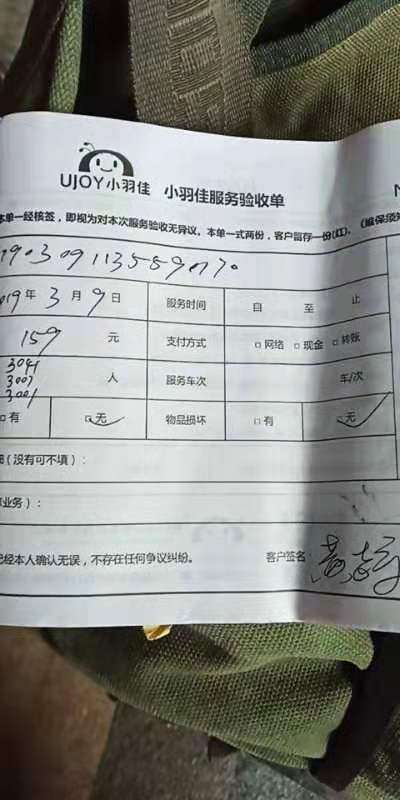 UJOY小羽佳 小羽佳服务验收单
本单一经核签，即视为对本次服务验收无异议。本单一式两份，客户留存一份(红)。
2019年3月9日 服务时间 自 至 止
159 元 支付方式 □网络 □现金 □转账
3041
3007 人 服务车次 车/次
3001
□有 □无 物品损坏 □有 □无
（没有可不填）：
业务）：
已经本人确认无误，不存在任何争议纠纷。 客户签名